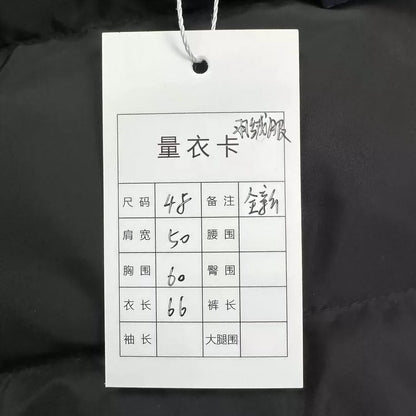 羽绒服
量衣卡
尺码 48 备注 全新
肩宽 50 腰围
胸围 60 臀围
衣长 66 裤长
袖长 大腿围